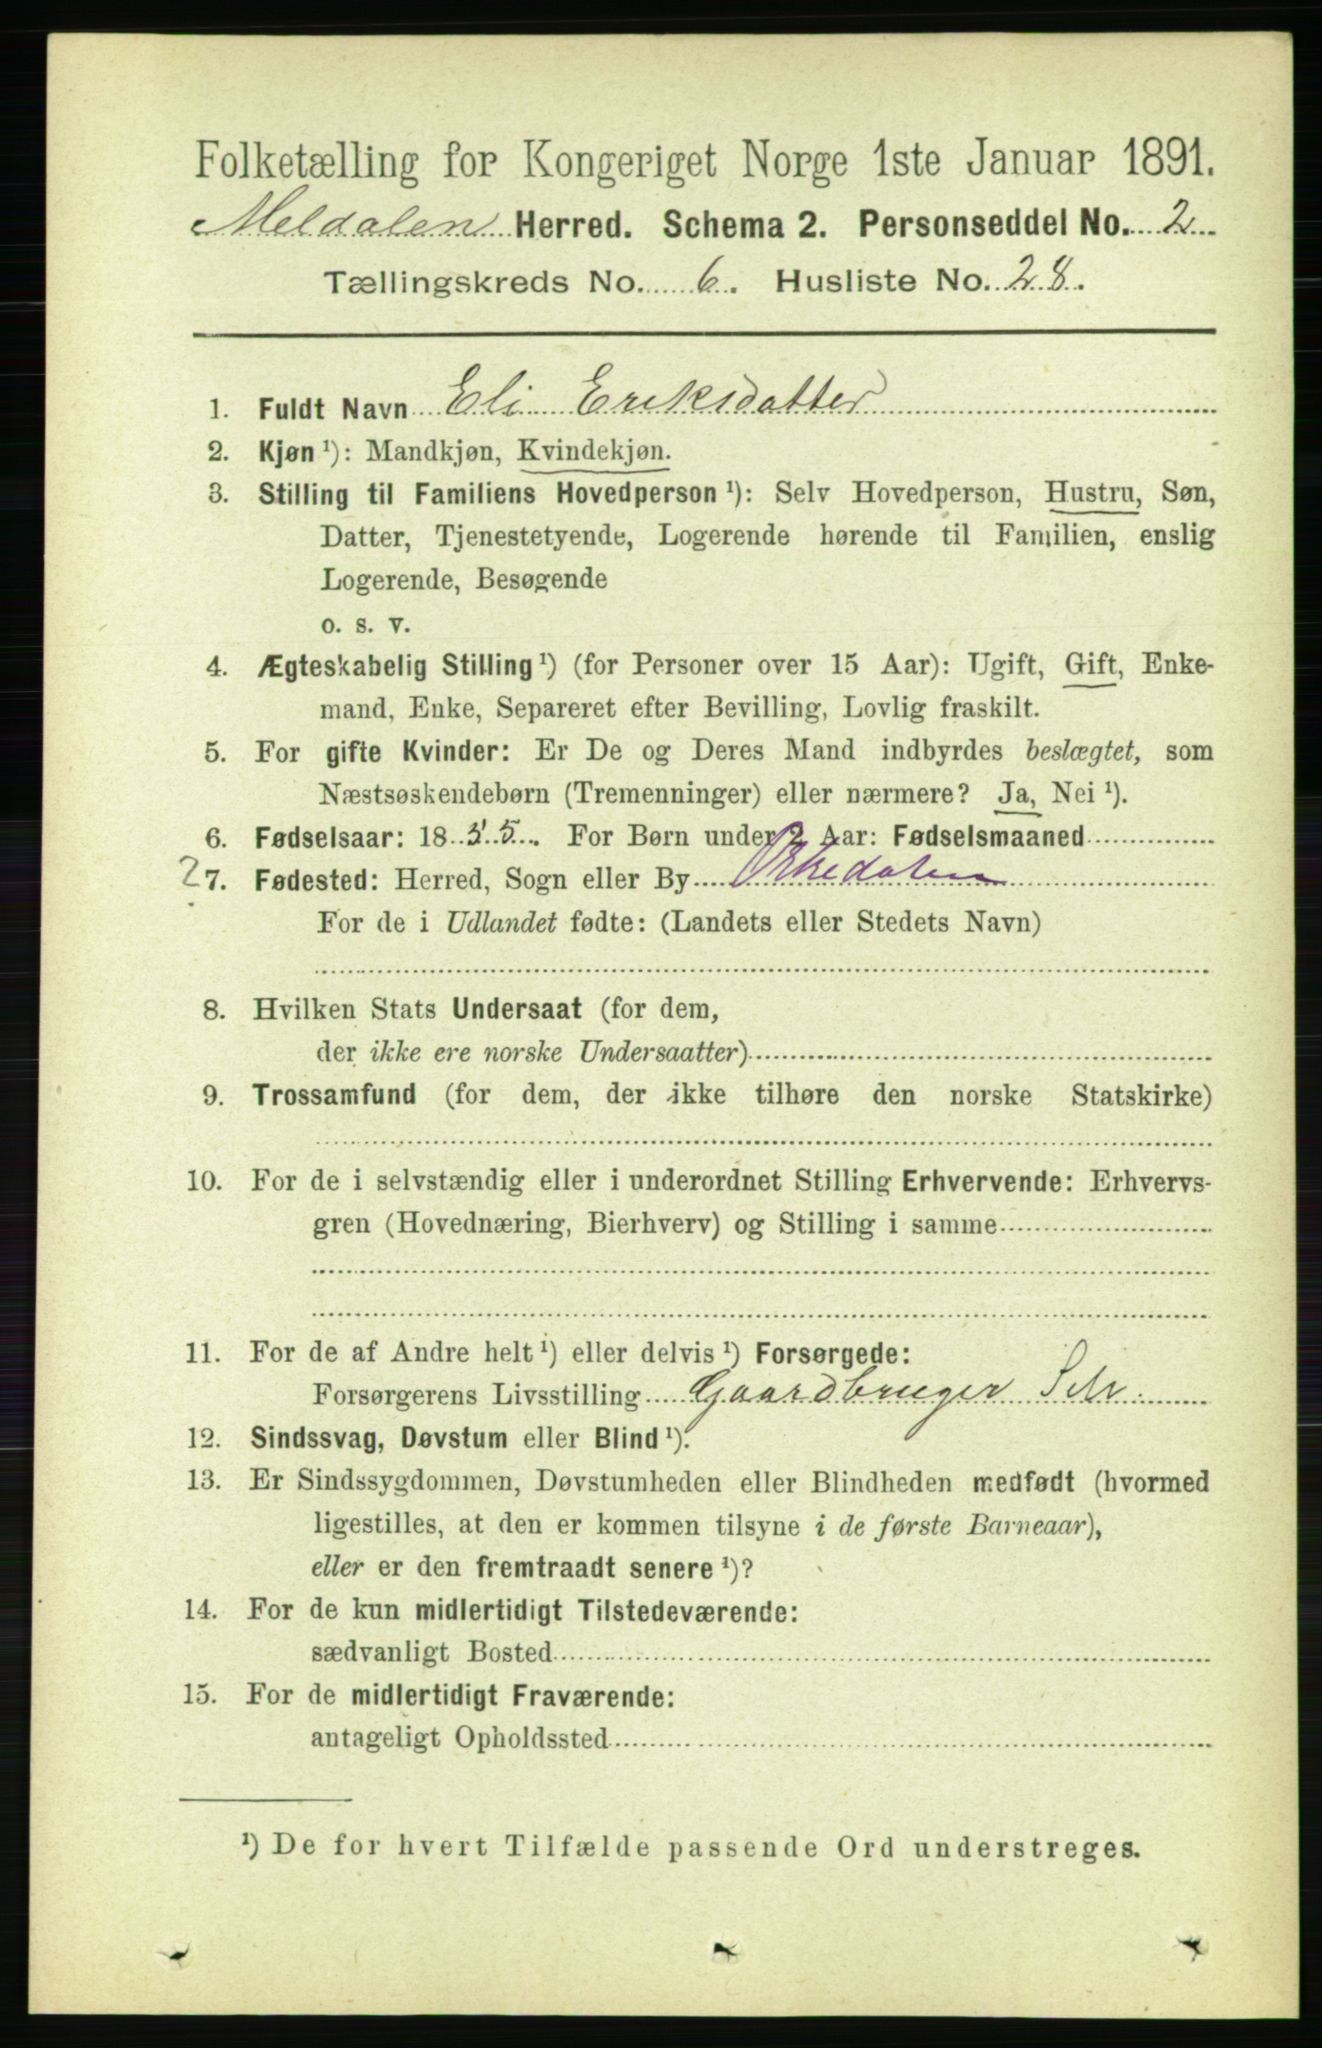 Folketælling for Kongeriget Norge 1ste Januar 1891.
Meldalen Herred. Schema 2. Personseddel No. 2
Tællingskreds No. 6. Husliste No. 28.
1. Fuldt Navn Eli Eriksdatter
2. Kjøn ¹): Mandkjøn, Kvindekjøn.
3. Stilling til Familiens Hovedperson ¹): Selv Hovedperson, Hustru, Søn,
Datter, Tjenestetyende, Logerende hørende til Familien, enslig
Logerende, Besøgende
o. s. v.
4. Ægteskabelig Stilling ¹) (for Personer over 15 Aar): Ugift, Gift, Enke-
mand, Enke, Separeret efter Bevilling, Lovlig fraskilt.
5. For gifte Kvinder: Er De og Deres Mand indbyrdes beslægtet, som
Næstsøskendebørn (Tremenninger) eller nærmere? Ja, Nei ¹).
6. Fødselsaar: 18 55. For Børn under 2 Aar: Fødselsmaaned
? 7. Fødested: Herred, Sogn eller By Orkedalen
For de i Udlandet fødte: (Landets eller Stedets Navn)
8. Hvilken Stats Undersaat (for dem,
der ikke ere norske Undersaatter)
9. Trossamfund (for dem, der ikke tilhøre den norske Statskirke)
10. For de i selvstændig eller i underordnet Stilling Erhvervende: Erhvervs-
gren (Hovednæring, Bierhverv) og Stilling i samme
11. For de af Andre helt ¹) eller delvis ¹) Forsørgede:
Forsørgerens Livsstilling Gaardbruger Selv.
12. Sindssvag, Døvstum eller Blind ¹).
13. Er Sindssygdommen, Døvstumheden eller Blindheden medfødt (hvormed
ligestilles, at den er kommen tilsyne i de første Barneaar),
eller er den fremtraadt senere ¹)?
14. For de kun midlertidigt Tilstedeværende:
sædvanligt Bosted
15. For de midlertidigt Fraværende:
antageligt Opholdssted
¹) De for hvert Tilfælde passende Ord understreges.